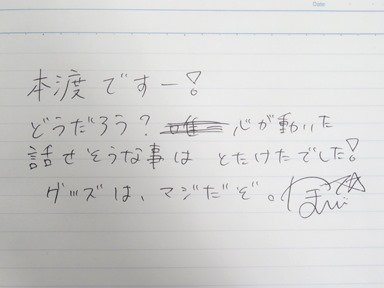 本渡ですー！
どうだろう？心が動いた
話せそうな事は とたけたでした！
グッズは、マジだぞ。
Date